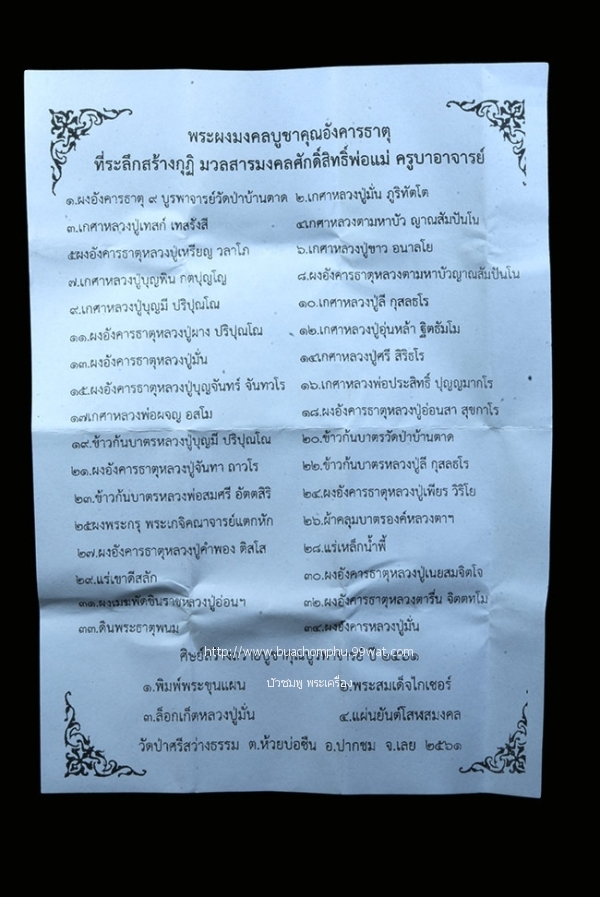 พระผงมงคลบูชาคุณอังคารธาตุ
ที่ระลึกสร้างกุฏิ มวลสารมงคลศักดิ์สิทธิ์พ่อแม่ ครูบาอาจารย์
๑.ผงอังคารธาตุ ๙ บูรพาจารย์วัดป่าบ้านตาด ๒.เกศาหลวงปู่มั่น ภูริทัตโต
๓.เกศาหลวงปู่เทสก์ เทสรังสี ๔เกศาหลวงตามหาบัว ญาณสัมปันโน
๕ผงอังคารธาตุหลวงปู่เหรียญ วลาโภ ๖.เกศาหลวงปู่ขาว อนาลโย
๗.เกศาหลวงปู่บุญพิน กตปุญโญ ๘.ผงอังคารธาตุหลวงตามหาบัวญาณสัมปันโน
๙.เกศาหลวงปู่บุญมี ปริปุณโณ ๑๐.เกศาหลวงปู่ลี กุสลธโร
๑๑.ผงอังคารธาตุหลวงปู่ผาง ปริปุณโณ ๑๒.เกศาหลวงปู่อุ่นหล้า ฐิตธัมโม
๑๓.ผงอังคารธาตุหลวงปู่มั่น ๑๔เกศาหลวงปู่ศรี สิริธโร
๑๕.ผงอังคารธาตุหลวงปู่บุญจันทร์ จันทวโร ๑๖.เกศาหลวงพ่อประสิทธิ์ ปุญญมากโร
๑๗เกศาหลวงพ่อผจญ อสโม ๑๘.ผงอังคารธาตุหลวงปู่อ่อนสา สุขกาโร
๑๙.ข้าวก้นบาตรหลวงปู่บุญมี ปริปุณโณ ๒๐.ข้าวก้นบาตรวัดป่าบ้านตาด
๒๑.ผงอังคารธาตุหลวงปู่จันทา ถาวโร ๒๒.ข้าวก้นบาตรหลวงปู่ลี กุสลธโร
๒๓.ข้าวก้นบาตรหลวงพ่อสมศรี อัตตสิริ ๒๔.ผงอังคารธาตุหลวงปู่เพียร วิริโย
๒๕ผงพระกรุ พระเกจิคณาจารย์แตกหัก ๒๖.ผ้าคลุมบาตรองค์หลวงตาฯ
๒๗.ผงอังคารธาตุหลวงปู่คำพอง ติสโส ๒๘.แร่เหล็กน้ำพี้
๒๙.แร่เขาดีสลัก ๓๐.ผงอังคารธาตุหลวงปู่เนยสมจิตโจ
๓๑.ผงเมฆพัดชินราชหลวงปู่อ่อนฯ ๓๒.ผงอังคารธาตุหลวงตารื่น จิตตทโม
๓๓.ดินพระธาตุพนม ๓๔.ผงอังคารหลวงปู่มั่น
http://www.buachomphu.99wat.com
ปี ๒๕๖๑
๑.พิมพ์พระขุนแผน ๒.พระสมเด็จไกเซอร์
บัวชมพู พระเครื่อง
๓.ล็อกเก็ตหลวงปู่มั่น ๔.แผ่นยันต์โสฬสมงคล
วัดป่าศรีสว่างธรรม ต.ห้วยบ่อซืน อ.ปากชม จ.เลย ๒๕๖๑